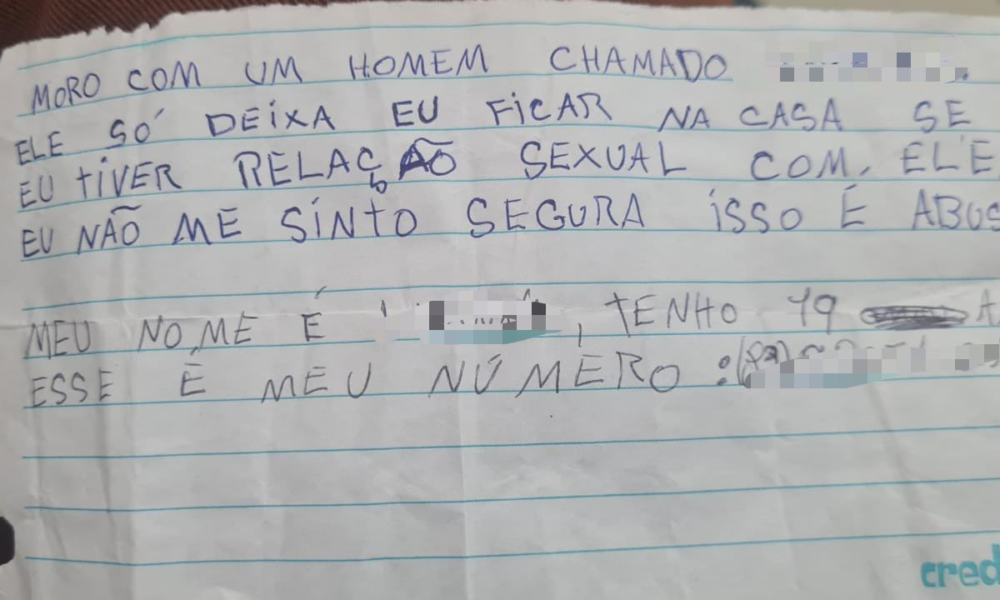 MORO COM UM HOMEM CHAMADO
ELE SÓ DEIXA EU FICAR NA CASA SE
EU TIVER RELAÇÃO SEXUAL COM. ELE
EU NÃO ME SINTO SEGURA ISSO É ABUS
MEU NOME É , TENHO 19 A
ESSE É MEU NÚMERO :
cred